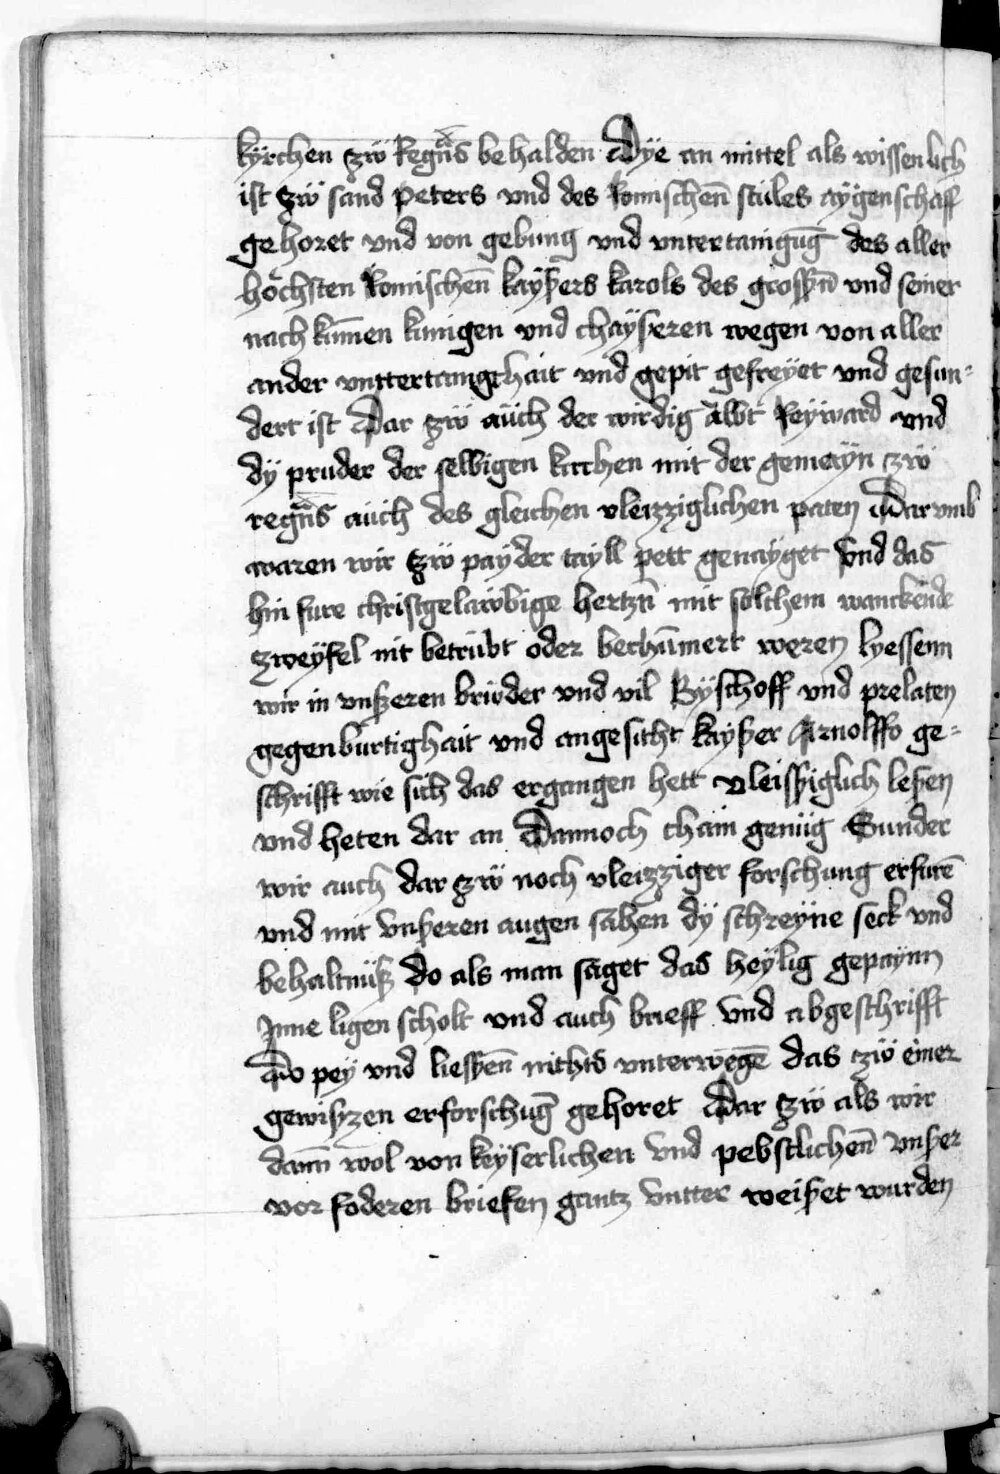 kyrchen zẅ Regn̄s behalden Dÿe an mittel als wissenlich
ist zẅ sand peters vnd des Romischen̄ stules aÿgenschaff
gehoret vnd von gebung vnd vntertanigūg des aller
hochsten Romischen̄ kaÿsers karols des grossen̄ vnd seiner
nach kūmen kunigen vnd chaÿseren wegen von aller
ander vnttertanigkhait vnd gepit gefreÿet vnd gesun-
dert ist Dar zẅ aüch der wirdig abbt Reÿward vnd
dÿ pruder der selbigen kirchen mit der gemeÿn zẅ
regn̄s aüch des gleichen vleizziglichen paten Dar vmb
waren wir zẅ paÿder tayll pett genaÿget Vnd das
hin fure christgelawbige hertzn̄ mit solchem wanckēde
zweÿfel nit betrübt oder bechūmert weren lyessenn
wir in vnszeren brüder vnd vil Bÿschoff vnd prelaten
gegenburtighait vnd angesicht kaÿser Arnolffo ge-
schrifft wie sich das ergangen hett vleissiglich lesen
vnd heten dar an Dannoch chain genüg Sunder
wir auch dar zẅ noch vleizziger forschung erfurē
vnd mit Vnseren augen sahen dÿ schreÿne seck vnd
behaltnüsz do als man saget das heÿlig gepaynn
Inne ligen scholt vnd auch brieff Vnd abgeschrifft
Do peÿ vnd liessen̄ nichts vnterwegē das tzẅ einer
gewiszen erforschūg gehoret Dar zẅ als wir
dann̄ wol von keÿserlichen Vnd pebstlichen̄ Vnser
vor foderen briefen gantz Vntter weiset wurden